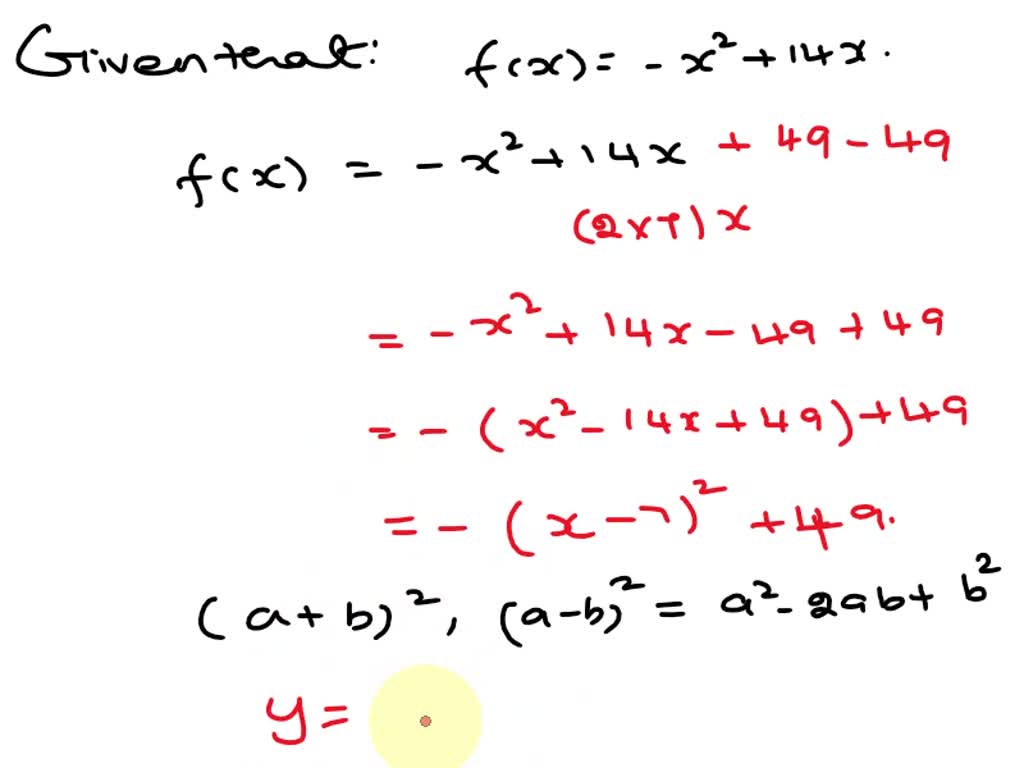 Given that: f(x) = - x² + 14x.
f(x) = - x² + 14x + 49 - 49
(2x7)x
= - x² + 14x - 49 + 49
= - (x² - 14x + 49) + 49
= - (x - 7)² + 49.
(a + b)², (a - b)² = a² - 2ab + b²
y =